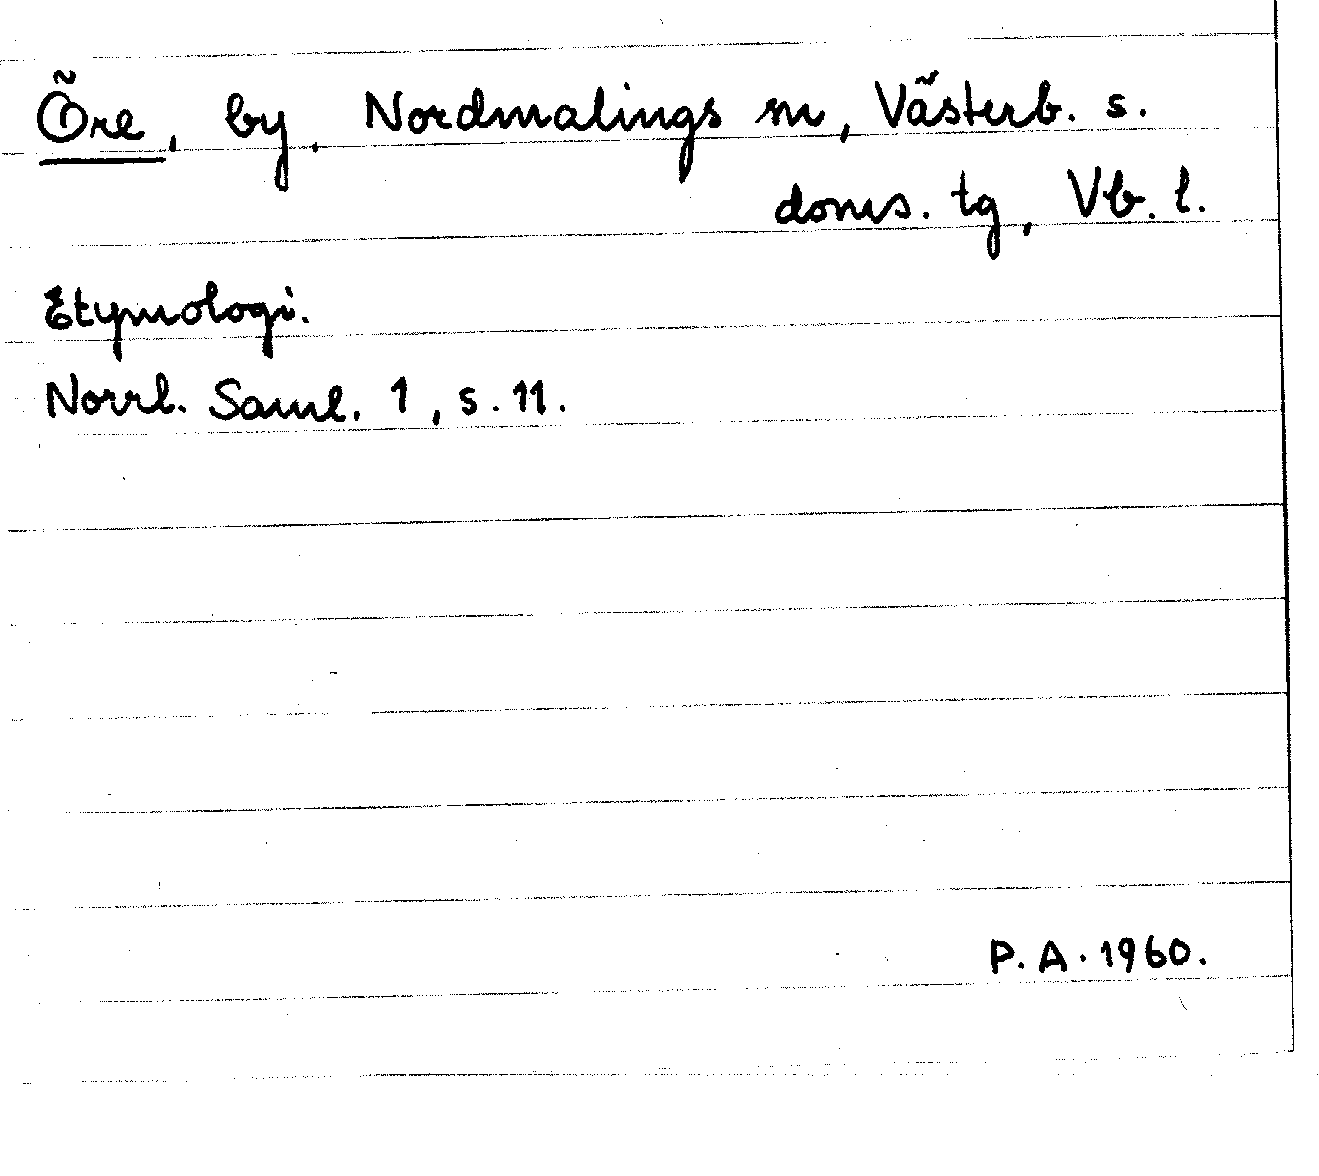 Öre, by, Nordmalings sn, Västerb. s.
doms. tg, Vb. l.
Etymologi.
Norrl. Saml. 1, s. 11.
P. A. 1960.